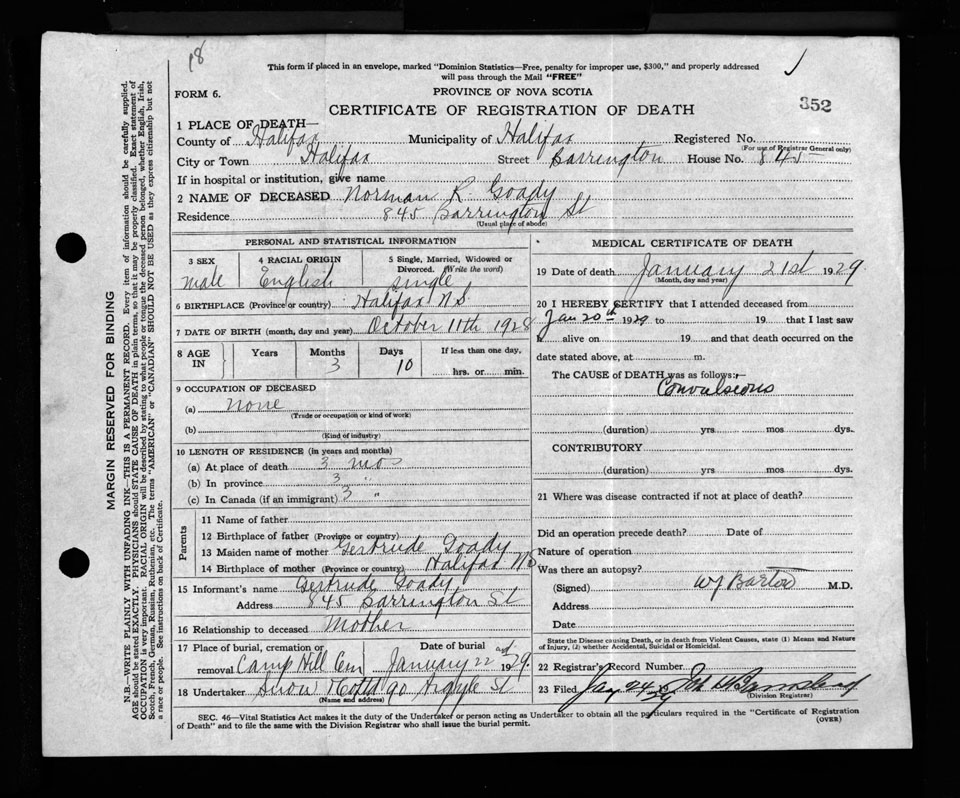 18
This form if placed in an envelope, marked "Dominion Statistics—Free, penalty for improper use, $300," and properly addressed
will pass through the Mail "FREE"
FORM 6.
PROVINCE OF NOVA SCOTIA
CERTIFICATE OF REGISTRATION OF DEATH
352
1 PLACE OF DEATH—
County of Halifax Municipality of Halifax Registered No.
(For use of Registrar General only)
City or Town Halifax Street Barrington House No. 845
If in hospital or institution, give name
2 NAME OF DECEASED Norman R Goady
Residence 845 Barrington St
(Usual place of abode)
PERSONAL AND STATISTICAL INFORMATION
3 SEX 4 RACIAL ORIGIN 5 Single, Married, Widowed or
Divorced. (Write the word)
male English single
6 BIRTHPLACE (Province or country) Halifax N.S.
7 DATE OF BIRTH (month, day and year) October 11th 1928
8 AGE IN Years Months Days If less than one day,
3 10 hrs. or min.
9 OCCUPATION OF DECEASED
(a) none
(Trade or occupation or kind of work)
(b)
(Kind of industry)
10 LENGTH OF RESIDENCE (in years and months)
(a) At place of death 3 mos
(b) In province 3 "
(c) In Canada (if an immigrant) 3 "
Parents
11 Name of father
12 Birthplace of father (Province or country)
13 Maiden name of mother Gertrude Goady
14 Birthplace of mother (Province or country) Halifax NS
15 Informant's name Gertrude Goady
Address 845 Barrington St
16 Relationship to deceased Mother
17 Place of burial, cremation or Date of burial
removal Camp Hill Cem January 22nd 1929.
18 Undertaker Snow & Co Ltd 90 Argyle St
(Name and address)
MEDICAL CERTIFICATE OF DEATH
19 Date of death January 21st 1929
(Month, day and year)
20 I HEREBY CERTIFY that I attended deceased from
Jan 20th 1929 to 19 that I last saw
h alive on 19 and that death occurred on the
date stated above, at m.
The CAUSE of DEATH was as follows:—
Convulsions
(duration) yrs mos dys.
CONTRIBUTORY
(duration) yrs mos dys.
21 Where was disease contracted if not at place of death?
Did an operation precede death? Date of
Nature of operation
Was there an autopsy?
(Signed) W J Barton M.D.
Address
Date
State the Disease causing Death, or in death from Violent Causes, state (1) Means and Nature
of Injury, (2) whether Accidental, Suicidal or Homicidal.
22 Registrar's Record Number
23 Filed Jan 24 29
(Division Registrar)
SEC. 46—Vital Statistics Act makes it the duty of the Undertaker or person acting as Undertaker to obtain all the particulars required in the "Certificate of Registration
of Death" and to file the same with the Division Registrar who shall issue the burial permit.
(OVER)
MARGIN RESERVED FOR BINDING
N.B.—WRITE PLAINLY WITH UNFADING INK—THIS IS A PERMANENT RECORD. Every item of information should be carefully supplied.
AGE should be stated EXACTLY. PHYSICIANS should STATE CAUSE OF DEATH in plain terms, so that it may be properly classified. Exact statement of
OCCUPATION is very important. RACIAL ORIGIN will be described by stating to what people or tongue the deceased person belonged, whether English, Irish,
Scotch, French, German, Russian, Ruthenian, etc. The terms "AMERICAN" or "CANADIAN" SHOULD NOT BE USED as they express citizenship but not
a race or people. See instructions on back of Certificate.